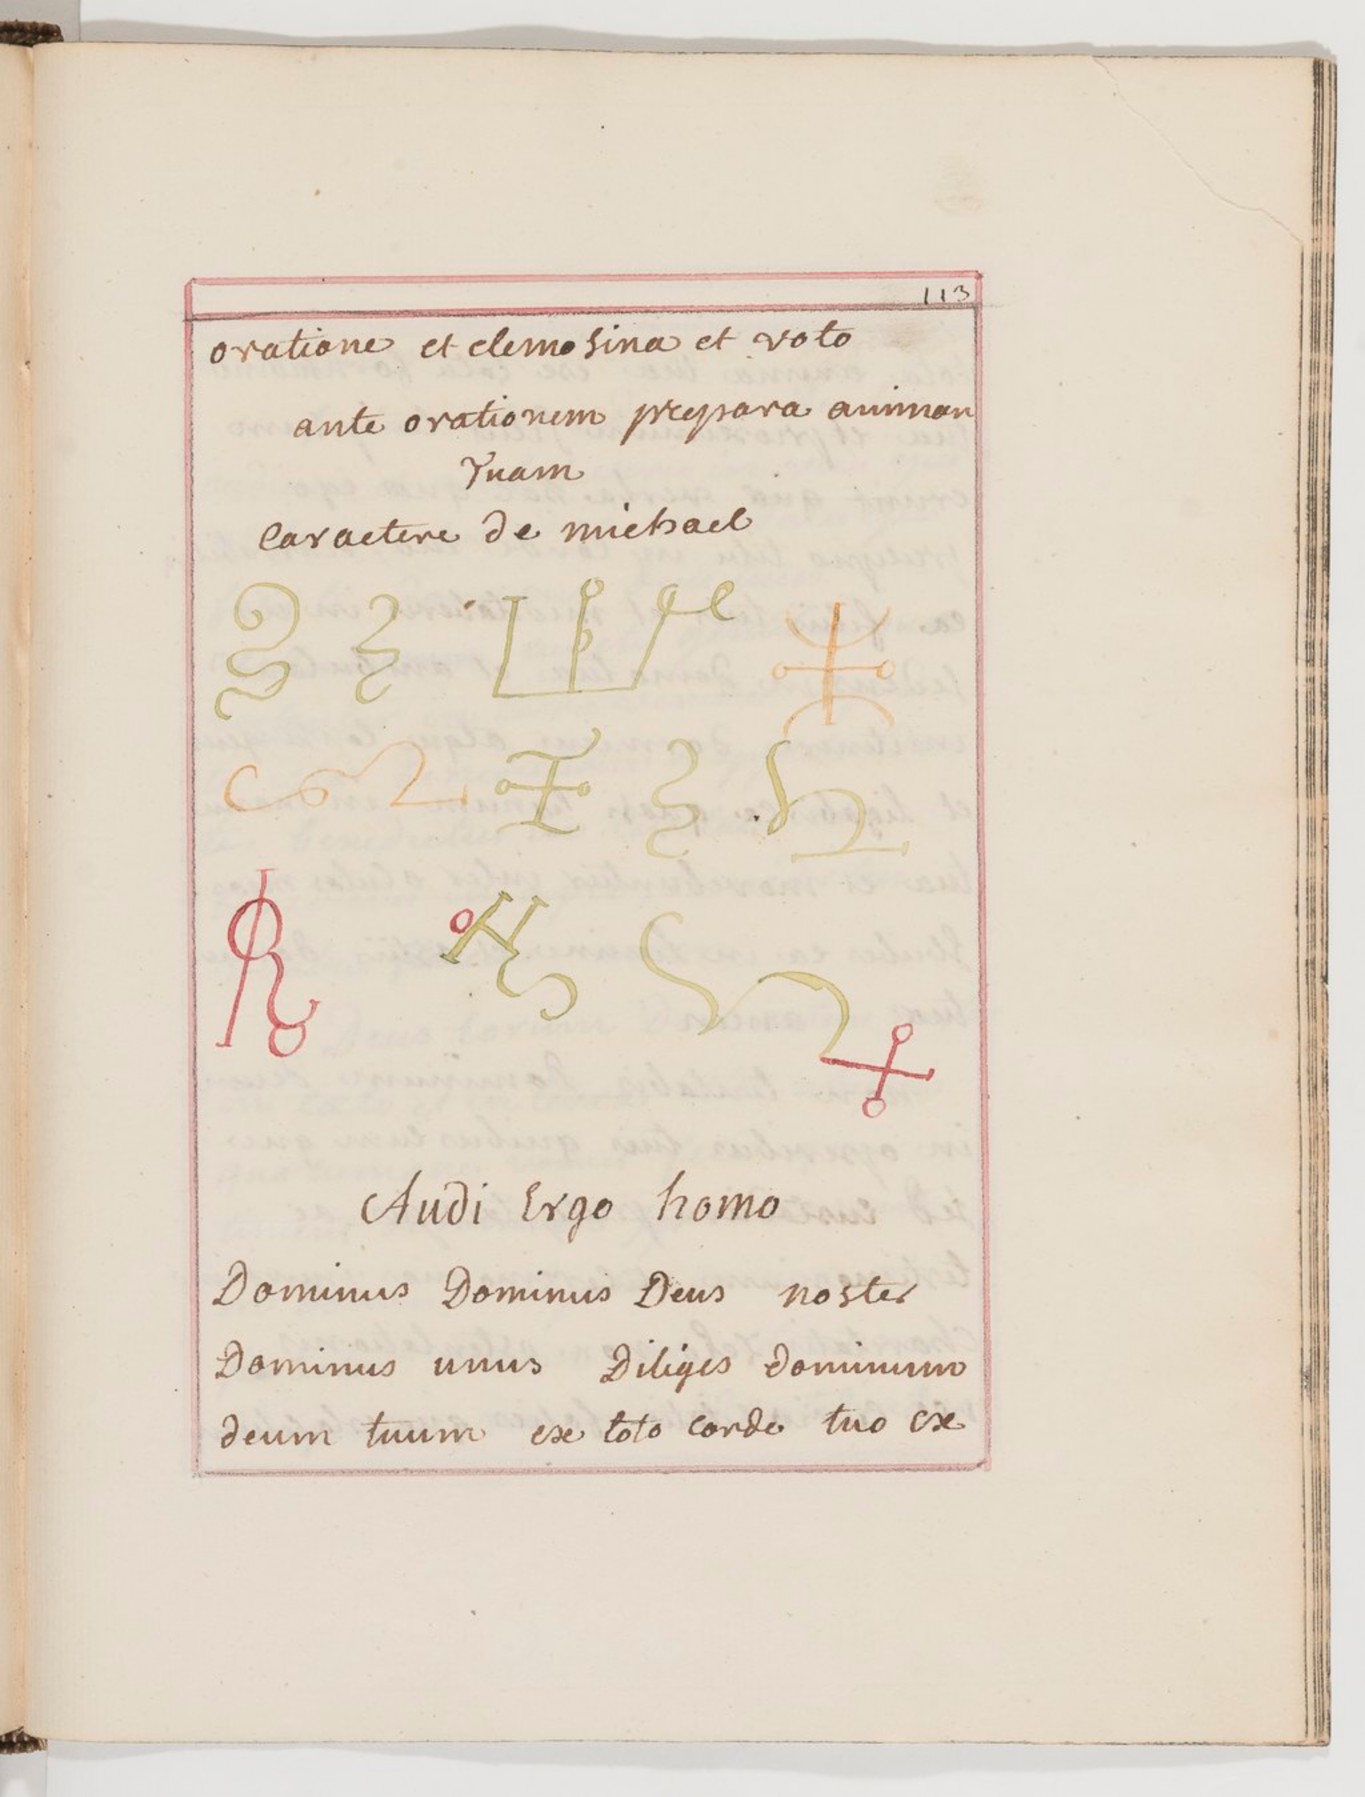 113
oratione et elemosina et voto
ante orationem prepara animan
Tuam
Caractere de michael
Audi Ergo homo
Dominus Dominus Deus noster
Dominus unus Diliges dominum
deum tuum exe toto corde tuo exe